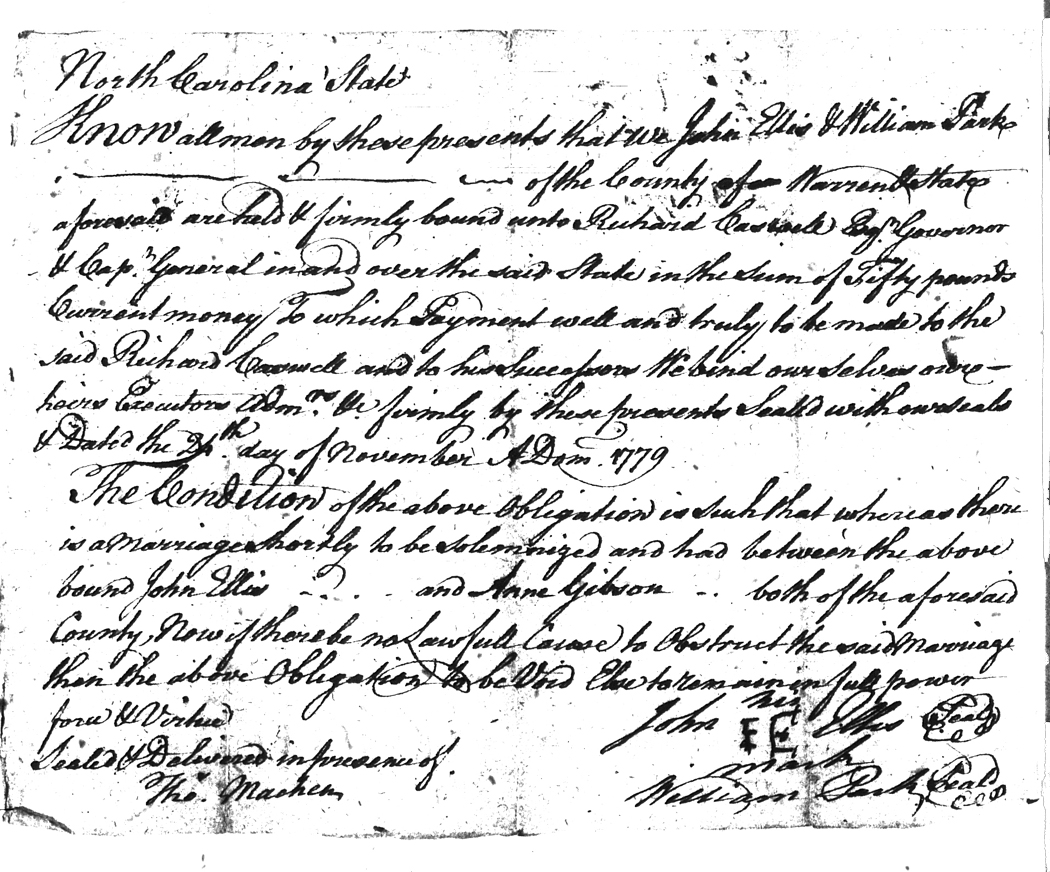 North Carolina State
Know all men by these presents that we John Ellis & William Park
of the County of Warren & State
aforesaid are held & firmly bound unto Richard Caswell Esqr. Governor
& Capn. General in and over the said State in the sum of Fifty pounds
Current money To which Payment well and truly to be made to the
said Richard Caswell and to his Successors We bind ourselves our
heirs Executors Admrs. &c firmly by these presents Sealed with our seals
& Dated the th. day of November A Dom. 1779
The Condition of the above Obligation is such that whereas there
is a Marriage shortly to be solemnized and had between the above
bound John Ellis and Anne Gibson both of the aforesaid
County, Now if there be no Lawfull Cause to Obstruct the said Marriage
then the above Obligation to be Void Else to remain in full power
force & Virtue
his
John IE Ellis Seald
mark
Sealed & Delivered in presence of.
Tho. Machen
William Park Seald